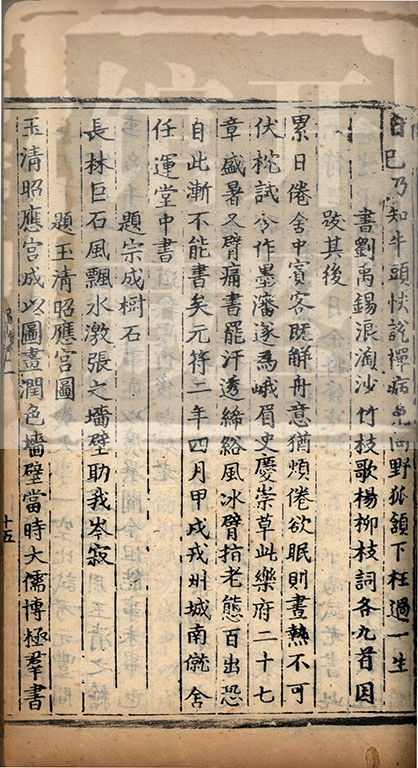 自已乃知牛頭快說禪病兔向野狐領下枉過一生
書劉禹錫浪淘沙竹枝歌楊柳枝詞各九首因
跋其後
累日倦舍中賓客既解舟意猶煩倦欲眠則晝熱不可
伏枕試令作墨瀋遂為峨眉史慶崇草此樂府二十七
章盛暑又臂痛書罷汗透絺綌風冰臂指老態百出恐
自此漸不能書矣元符二年四月甲戌戎州城南僦舍
任運堂中書
題宗成樹石
長林巨石風飄水激張之墻壁助我岑寂
題玉清昭應宮圖
玉清昭應宮成以圖畫潤色墻壁當時大儒博極羣書
十五